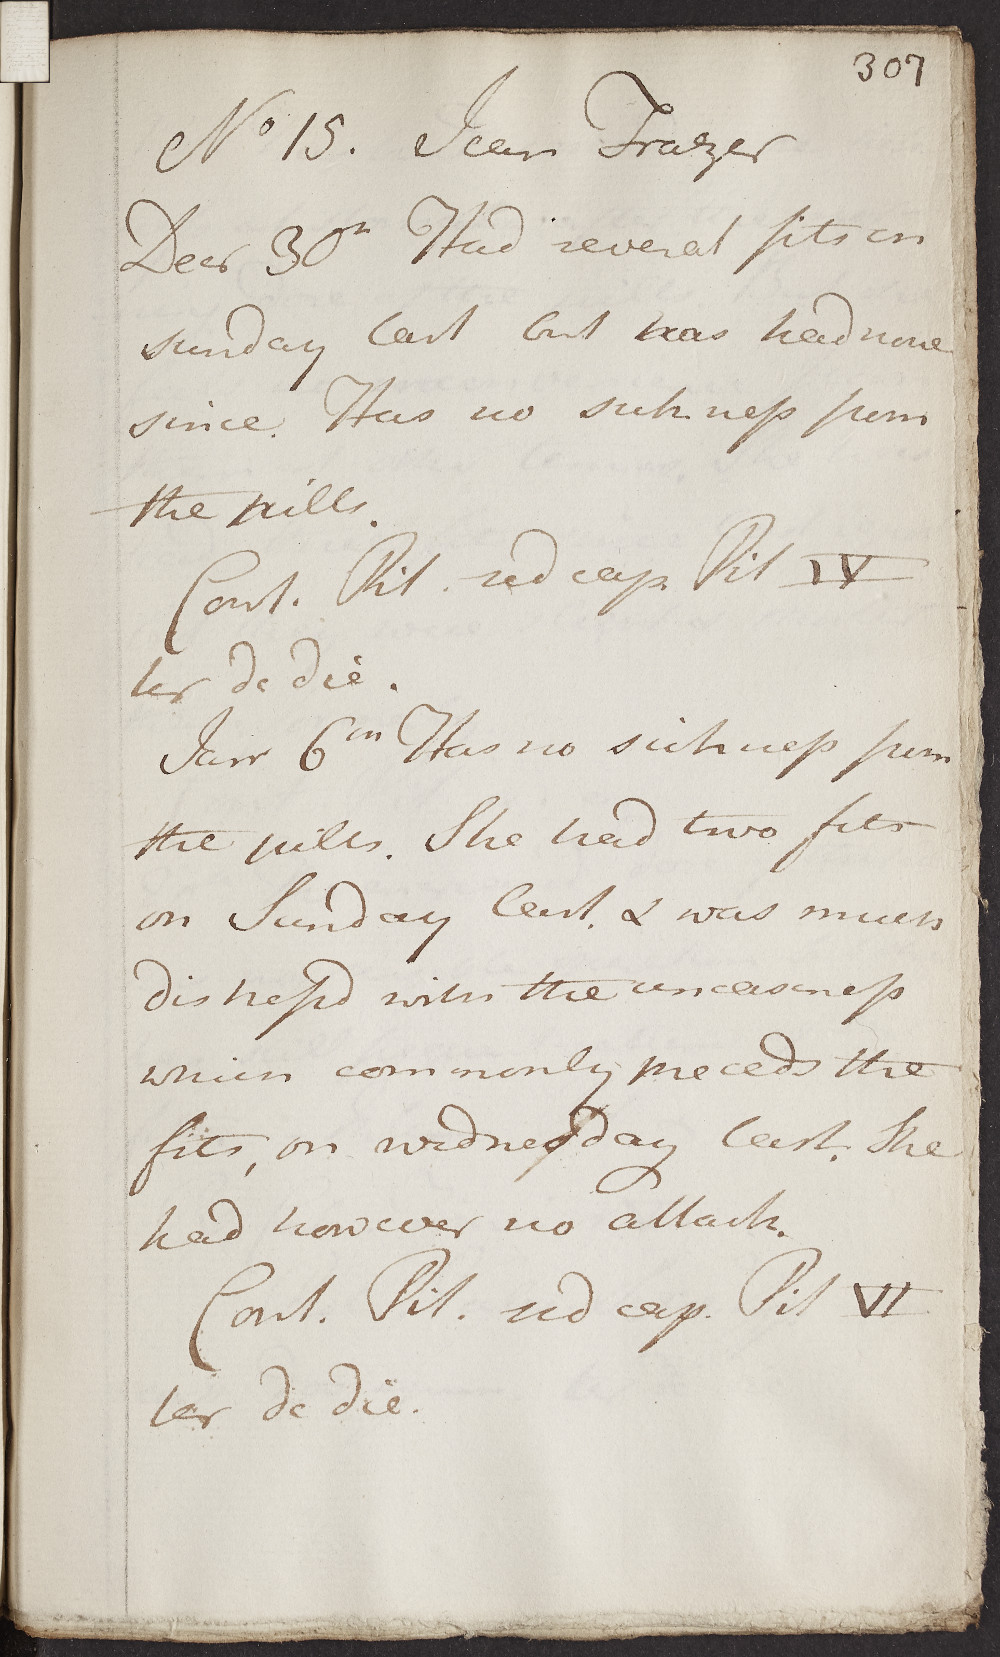 307
No 15. Jean Frazer
Decr 30th Had several fits on
sunday last but has had none
since. Has no sickness from
the pills.
Cont. Pil. sed cap. Pil IV
ter de die.
Janr 6th Has no sickness from
the pills. She had two fits
on Sunday last. & was much
distress'd with the uneasiness
which commonly preceds the
fits, on wednesday last. She
had however no attack.
Cont. Pil. sed cap. Pil VI
ter de die.